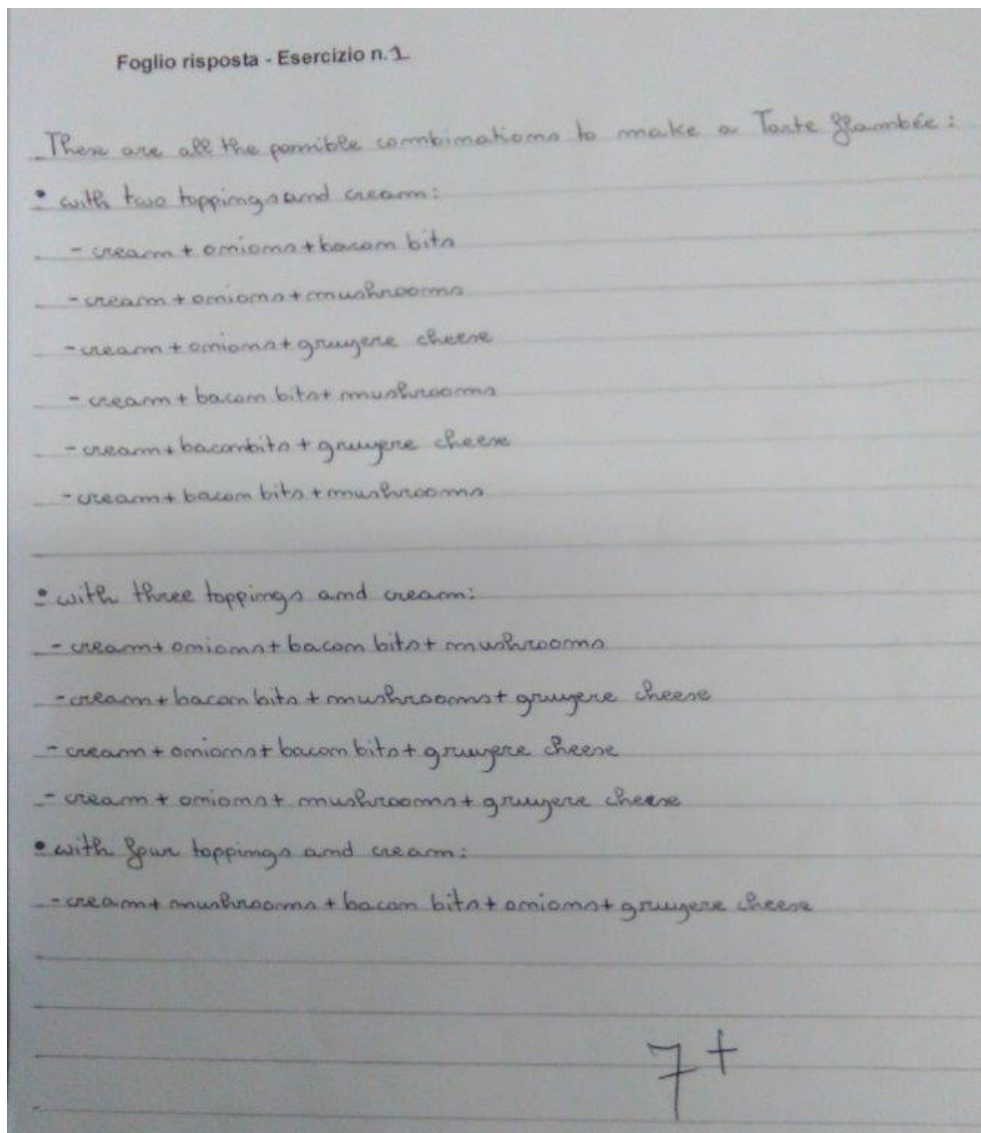 Foglio risposta - Esercizio n.1
These are all the possible combinations to make a Tarte flambée:
• with two toppings and cream:
- cream + onions + bacon bits
- cream + onions + mushrooms
- cream + onions + gruyere cheese
- cream + bacon bits + mushrooms
- cream + bacon bits + gruyere cheese
- cream + bacon bits + mushrooms
• with three toppings and cream:
- cream + onions + bacon bits + mushrooms
- cream + bacon bits + mushrooms + gruyere cheese
- cream + onions + bacon bits + gruyere cheese
- cream + onions + mushrooms + gruyere cheese
• with four toppings and cream:
- cream + mushrooms + bacon bits + onions + gruyere cheese
7+